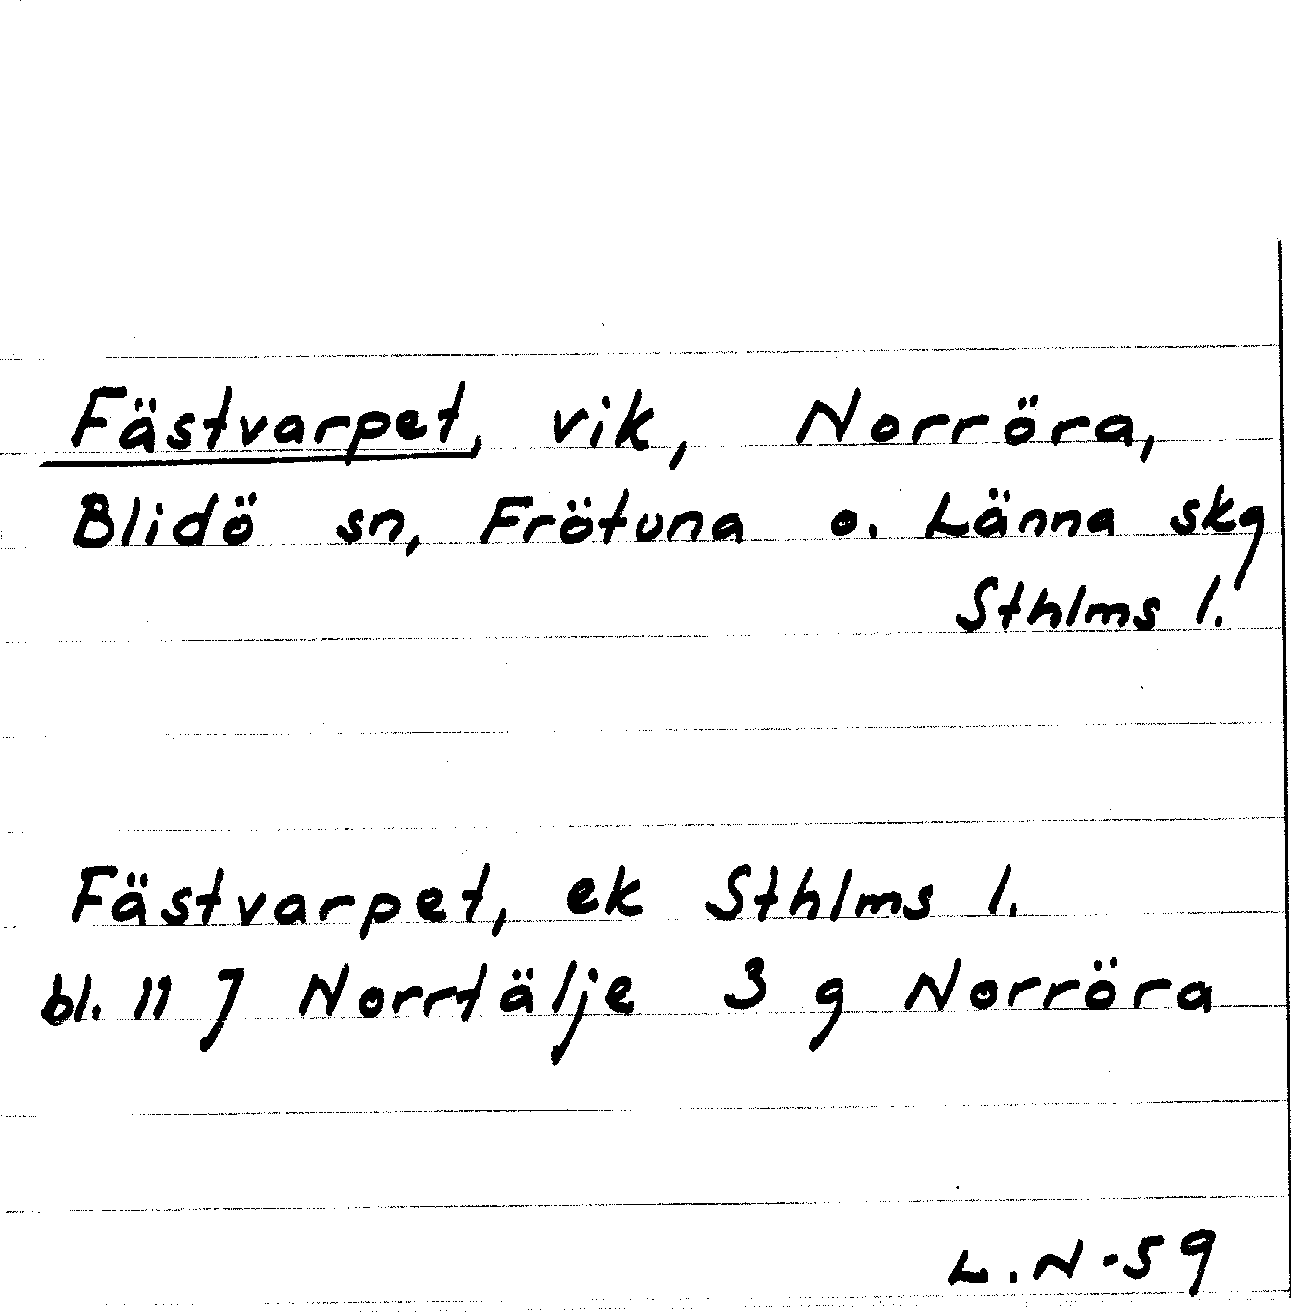 Fästvarpet, vik, Norröra,
Blidö sn, Frötuna o. Länna skg
Sthlms l.
Fästvarpet, ek Sthlms l.
bl. 11 J Norrtälje 3 g Norröra
L.N-59